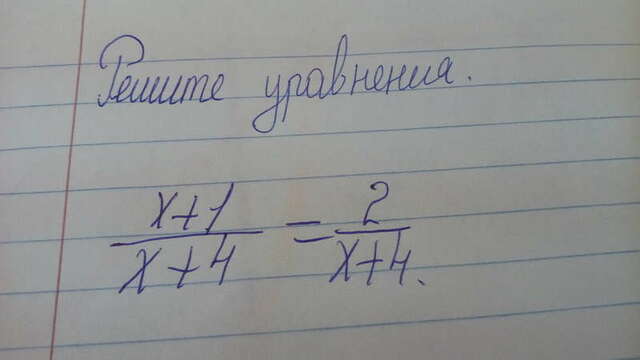 Решите уравнения.
x+1/x+4 = 2/x+4.